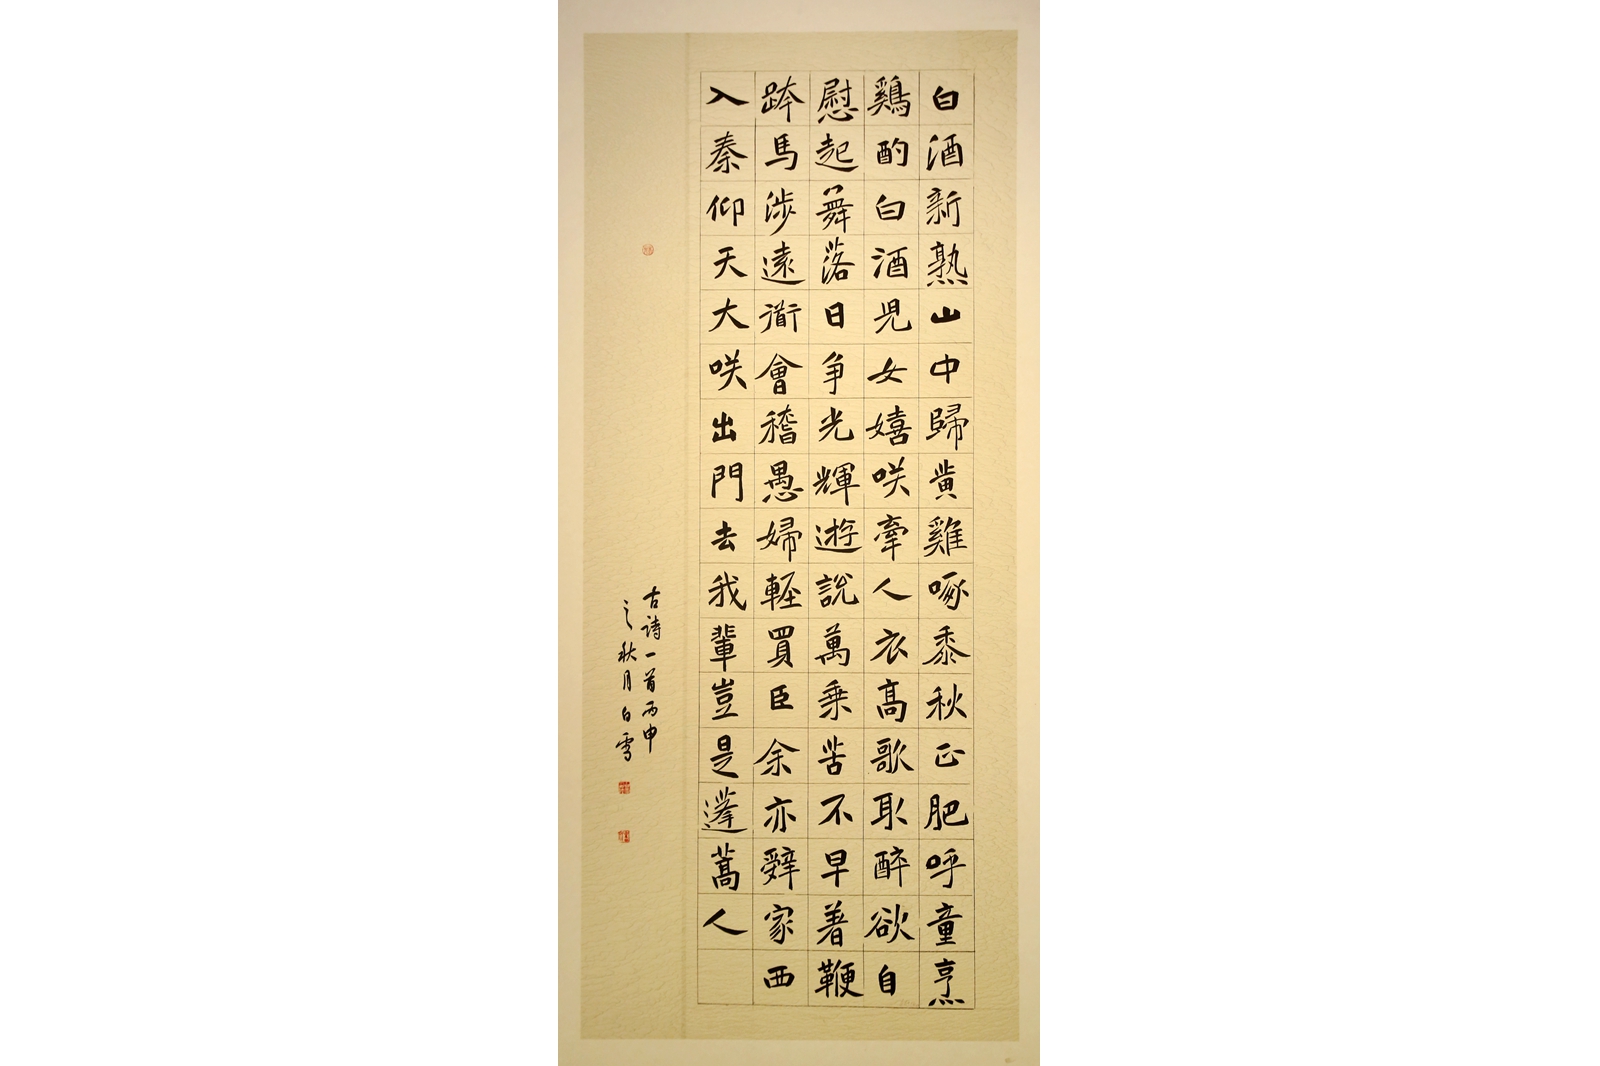 白酒新熟山中歸黄雞啄黍秋正肥呼童烹
鷄酌白酒兒女嬉咲牽人衣髙歌取醉欲自
慰起舞落日争光輝遊説萬乗苦不早着鞭
跨馬涉遠衟會稽愚婦輕買臣余亦辤家西
入秦仰天大咲出門去我輩豈是蓬蒿人
古诗一首丙申
之秋月白雪